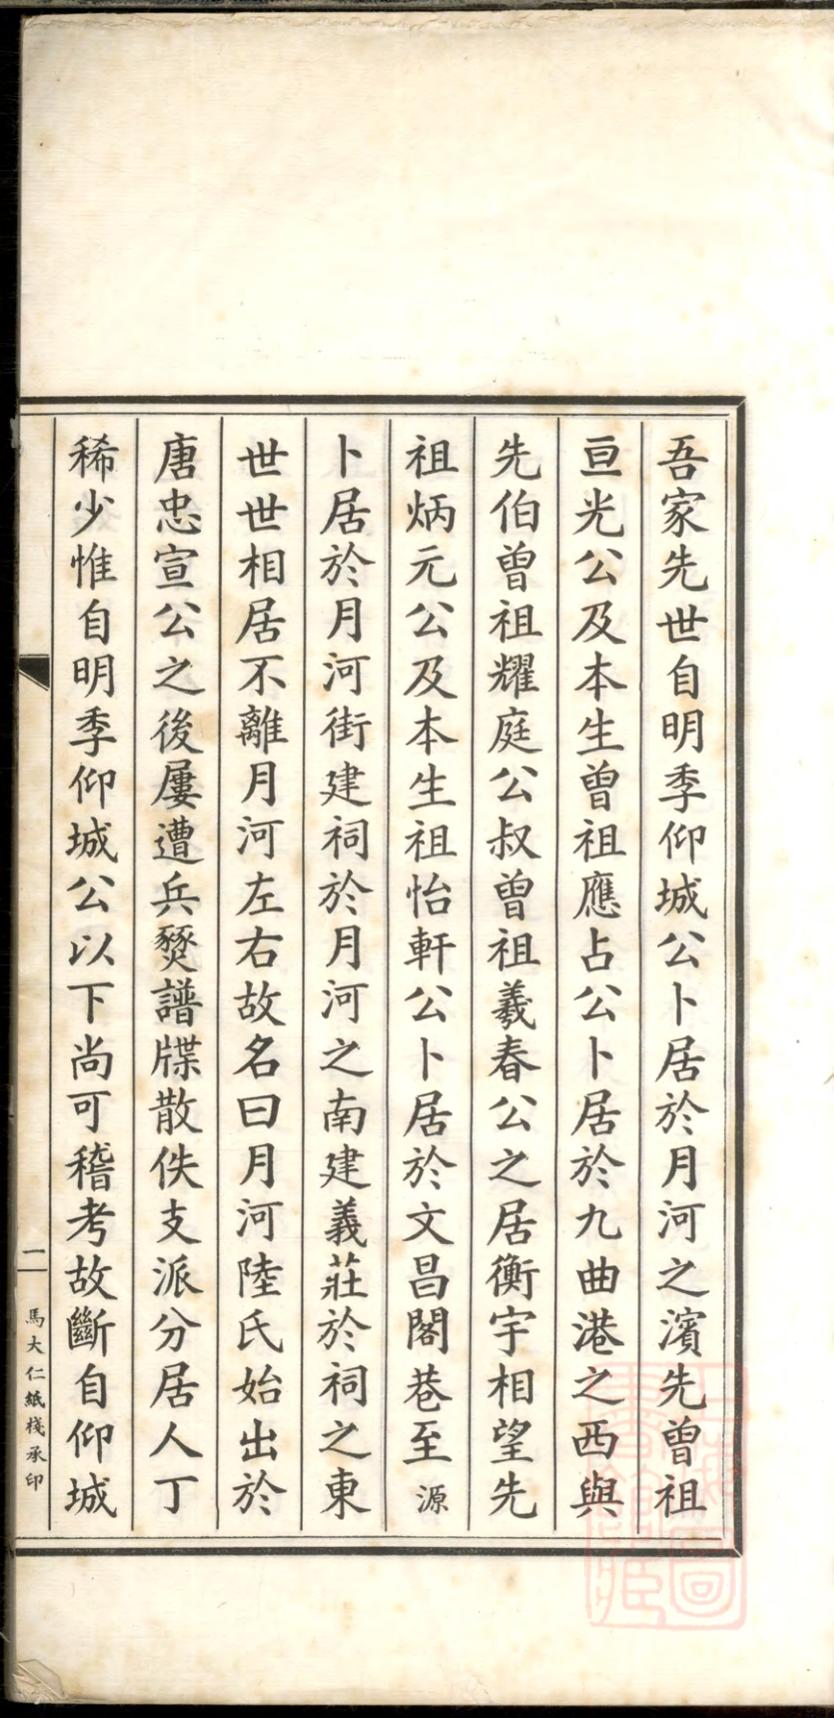 吾家先世自明季仰城公卜居於月河之濱先曾祖
亘光公及本生曾祖應占公卜居於九曲港之西與
先伯曾祖耀庭公叔曾祖羲春公之居衡宇相望先
祖炳元公及本生祖怡軒公卜居於文昌閣巷至源
卜居於月河街建祠於月河之南建義莊於祠之東
世世相居不離月河左右故名曰月河陸氏始出於
唐忠宣公之後屢遭兵燹譜牒散佚支派分居人丁
稀少惟自明季仰城公以下尚可稽考故斷自仰城
一
馬大仁紙棧承印
上海圖書館藏